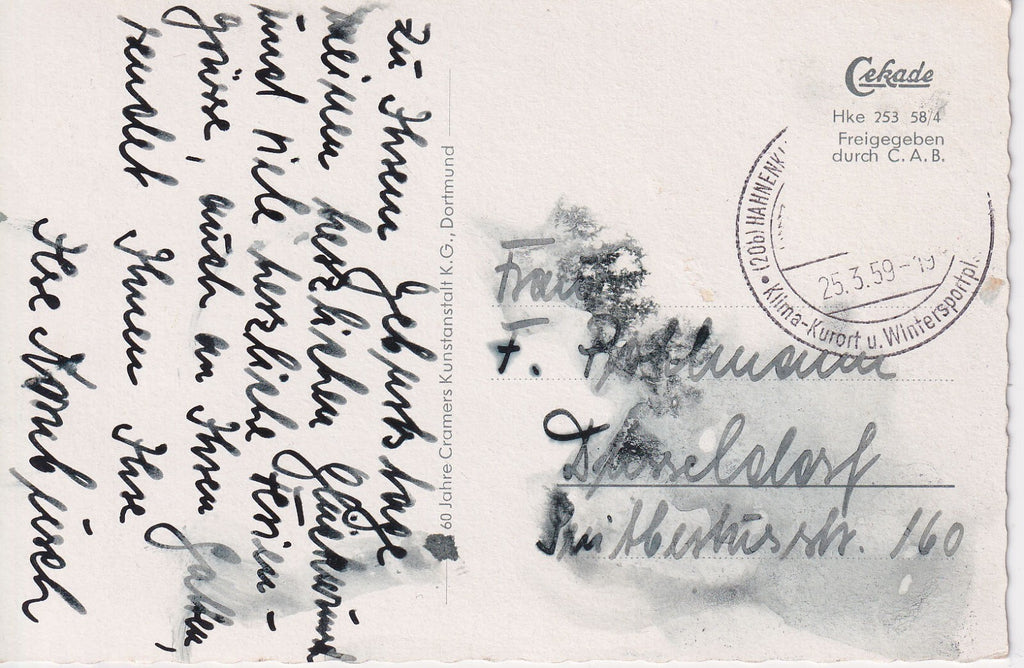 Zu Ihrem Geburtstage
meinen herzlichen Glückwunsch
und viele herzliche Ferien-
grüsse, auch an Ihren Gatten,
sendet Ihnen Ihre
Ilse
60 Jahre Cramers Kunstanstalt K.G., Dortmund
Cekade
Hke 253 58/4
Freigegeben
durch C.A.B.
(20b) HAHNENK
25.3.59-19
Klima-Kurort u. Wintersportpl.
Frau
F.
Düsseldorf
Suitbertusstr. 160